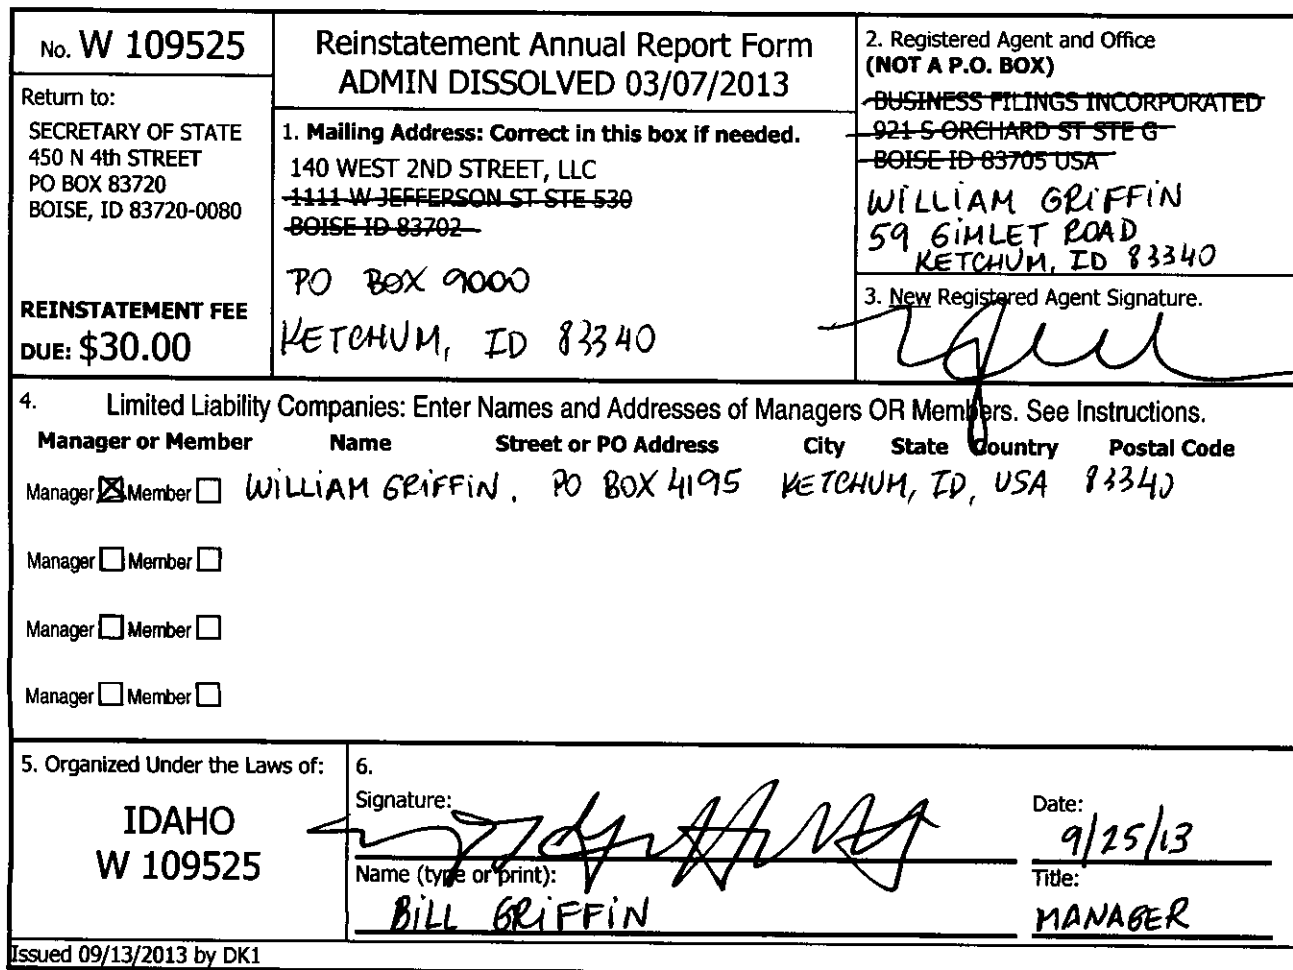 No. W 109525
Return to:
SECRETARY OF STATE
450 N 4th STREET
PO BOX 83720
BOISE, ID 83720-0080
REINSTATEMENT FEE
DUE: $30.00
Reinstatement Annual Report Form
ADMIN DISSOLVED 03/07/2013
1. Mailing Address: Correct in this box if needed.
140 WEST 2ND STREET, LLC
1111 W JEFFERSON ST STE 530
BOISE ID 83702
PO BOX 9000
KETCHUM, ID 83340
2. Registered Agent and Office
(NOT A P.O. BOX)
BUSINESS FILINGS INCORPORATED
921 S ORCHARD ST STE G
BOISE ID 83705 USA
WILLIAM GRIFFIN
59 GIMLET ROAD
KETCHUM, ID 83340
3. New Registered Agent Signature.
4. Limited Liability Companies: Enter Names and Addresses of Managers OR Members. See Instructions.
Manager or Member Name Street or PO Address City State Country Postal Code
Manager Member WILLIAM GRIFFIN, PO BOX 4195 KETCHUM, ID, USA 83340
Manager Member
Manager Member
Manager Member
5. Organized Under the Laws of:
IDAHO
W 109525
6.
Signature:
Date:
9/25/13
Name (type or print):
BILL GRIFFIN
Title:
MANAGER
Issued 09/13/2013 by DK1